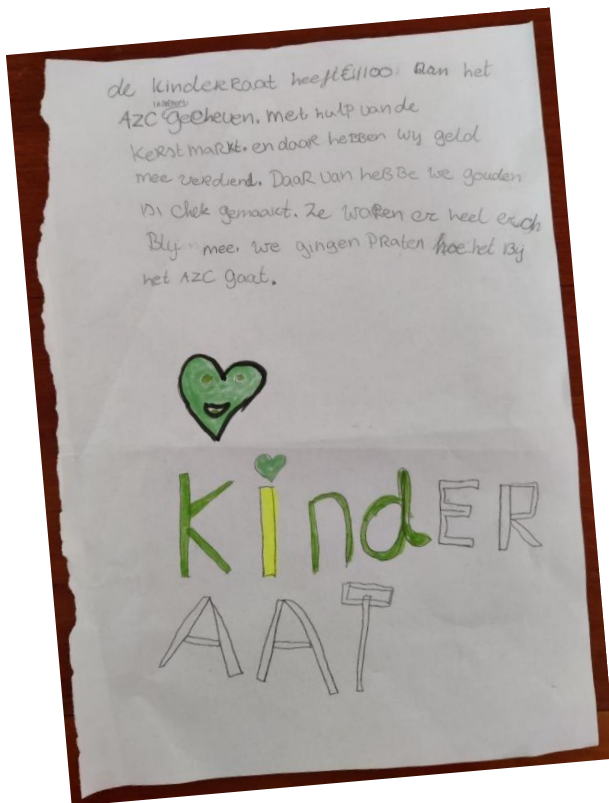 de kinderraat heeft €1100 aan het
AZC gegeven. met hulp van de
kerstmarkt. en daar hebben wij geld
mee verdiend. Daar van heBBe we gouden
chek gemaakt. Ze waren er heel erch
Blij mee. we gingen praten hoe het Bij
het AZC gaat.
KindER
AAT